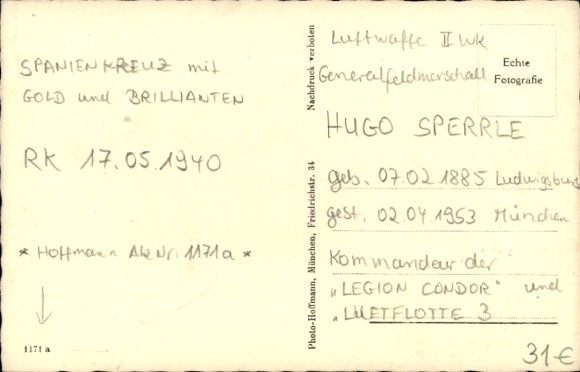 SPANIENKREUZ mit
GOLD und BRILLIANTEN
RK 17.05.1940
* Hoffmann Ak Nr. 1171a *
1171 a
Nachdruck verboten
Photo-Hoffmann, München, Friedrichstr. 34
Luftwaffe II WK
Echte
Fotografie
Generalfeldmarschall
HUGO SPERRLE
geb. 07.02 1885 Ludwigsburg
gest. 02.04 1953 München
Kommandeur der
„LEGION CONDOR" und
„LUFTFLOTTE 3
31€